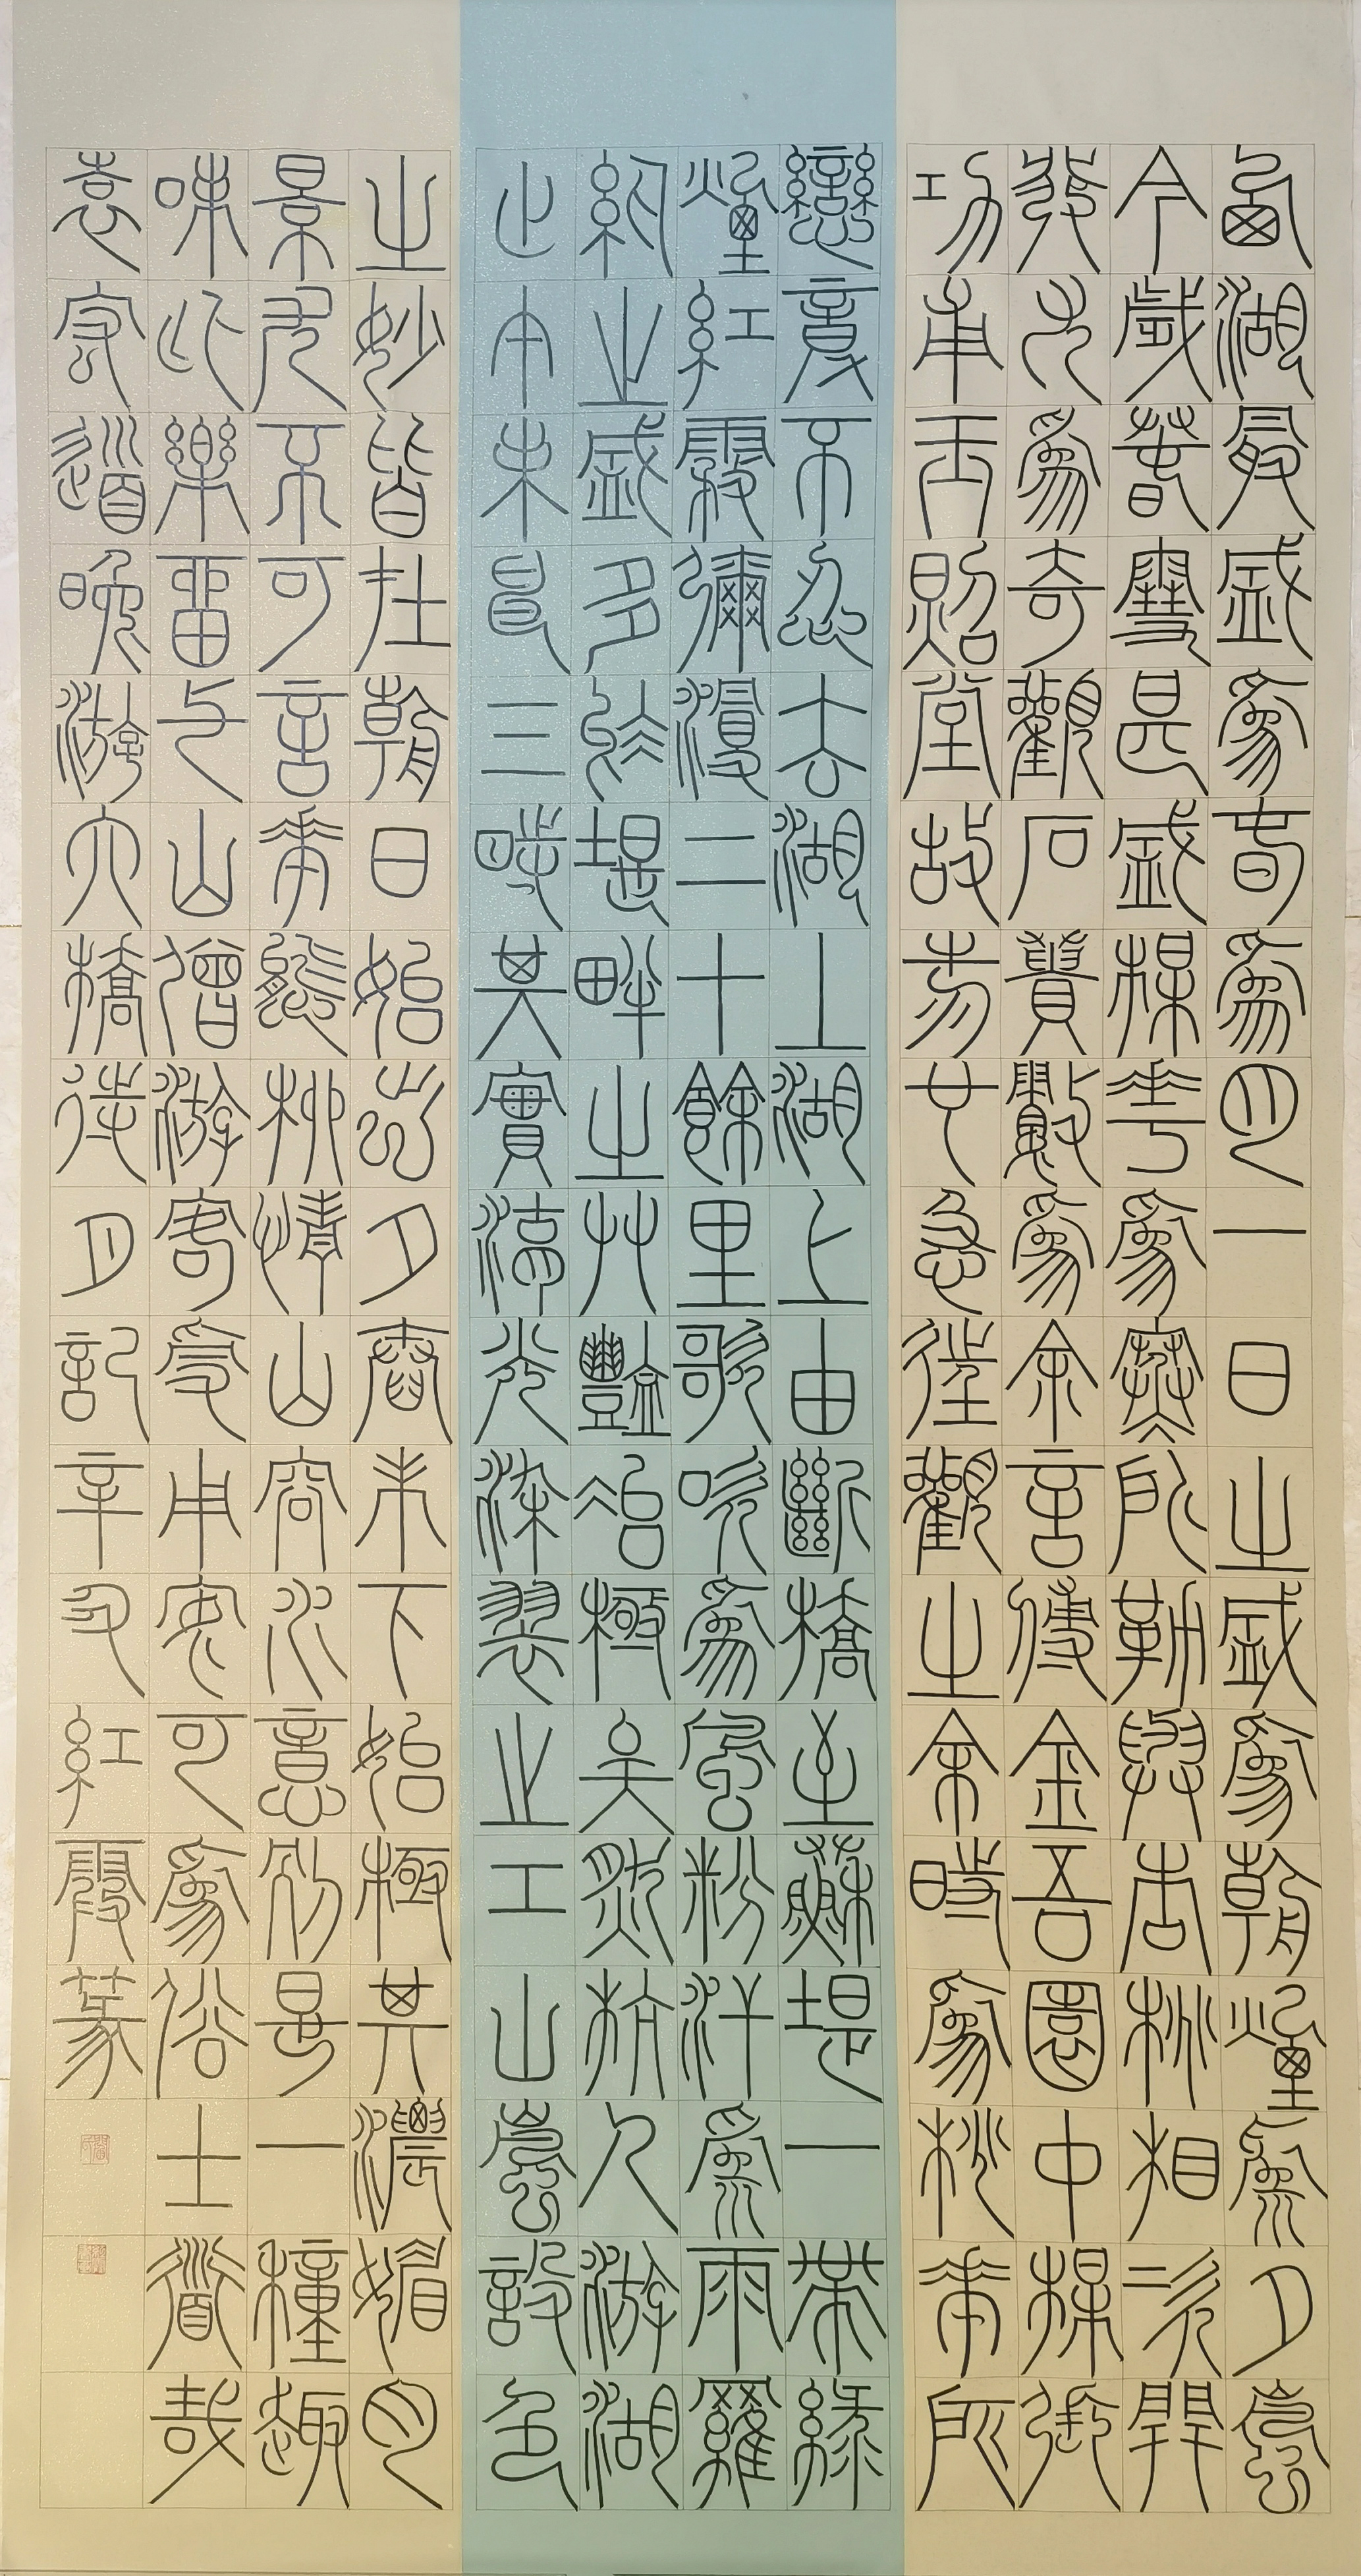 西湖最盛為春為月一日之盛為朝煙為夕嵐
今歲春雪甚盛梅花為寒所勒與杏桃相次開
發尤為奇觀石簣數為余言傅金吾園中梅張
功甫玉照堂故物也急往觀之余時為桃花所
戀竟不忍去湖上湖上由斷橋至蘇堤一帶綠
煙紅霧彌漫二十餘里歌吹為風粉汗為雨羅
紈之盛多於堤畔之艸豔冶極矣然杭人游湖
止午未申三時其實湖光染翠之工山嵐設色
之妙皆在朝日始出夕舂未下始極其濃媚月
景尤不可言花態柳情山容水意別是一種趣
味此樂留与山僧游客受用安可為俗士道哉
袁宏道晚游六橋待月記辛丑紅霞篆